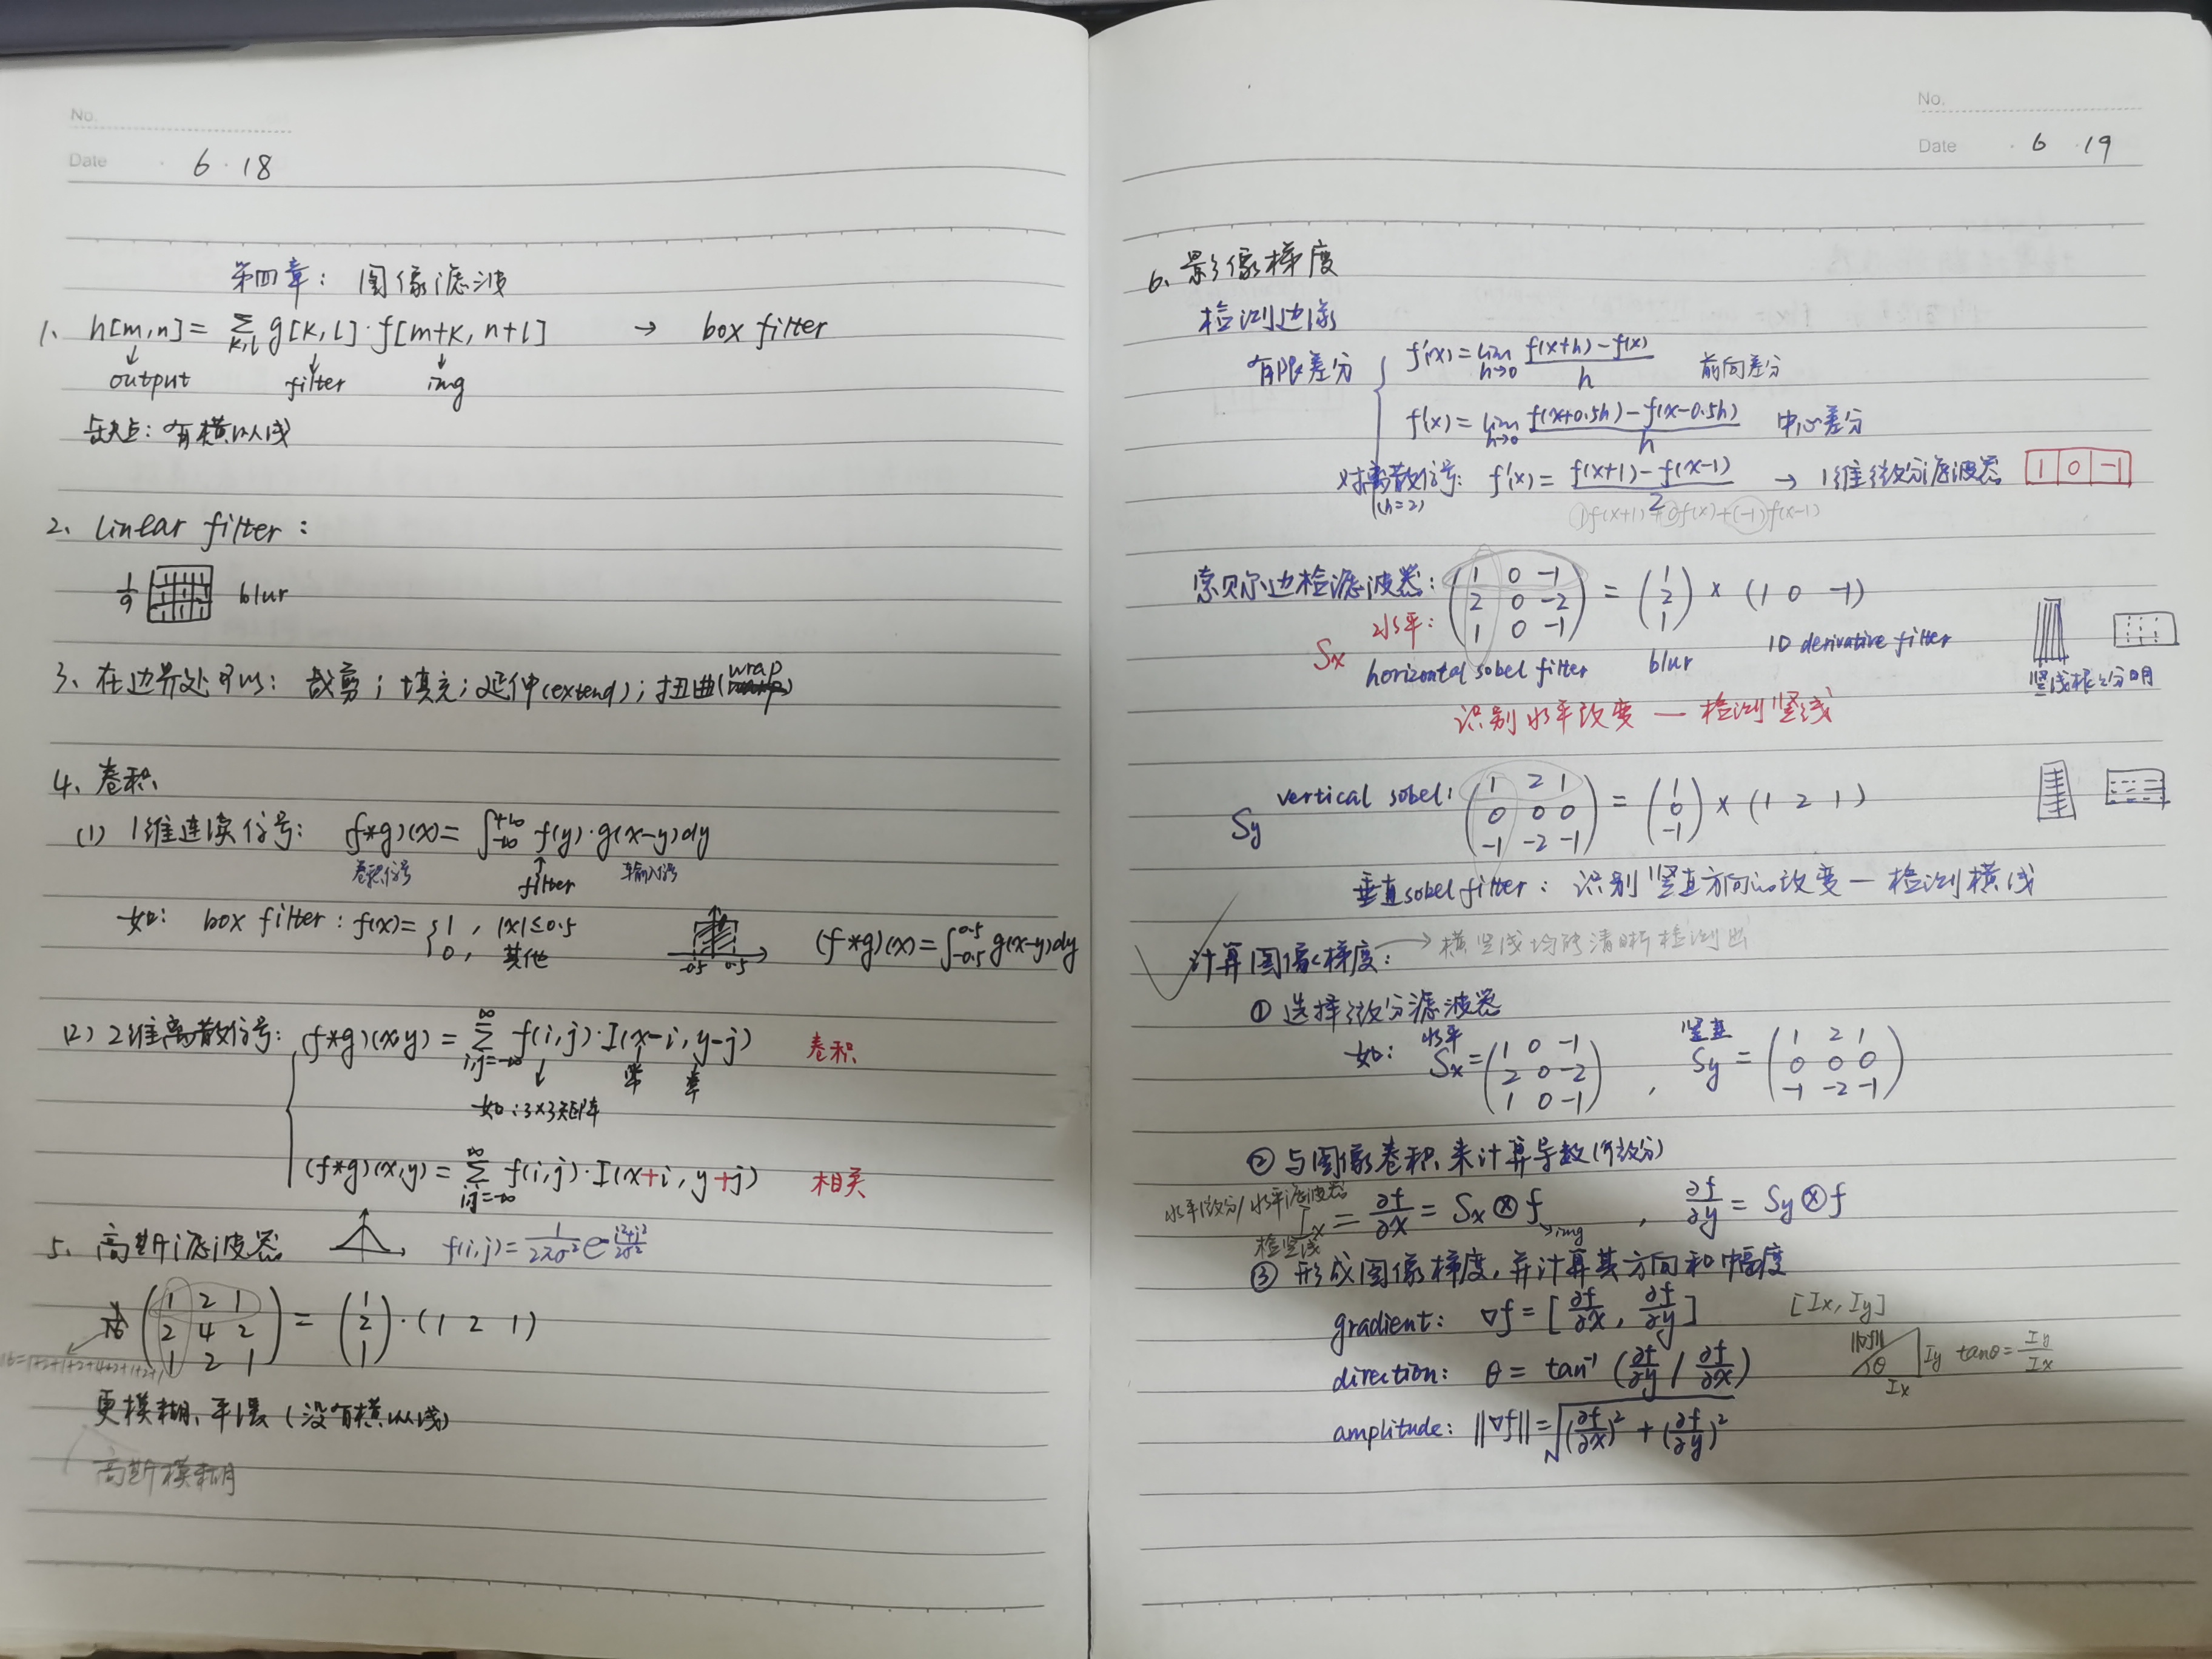 No.
Date 6 · 18
第四章：图像滤波
1、 h[m,n] = ∑ g[k,l] · f[m+k, n+l] → box filter
k,l
output filter img
缺点：有横纵线
2、 linear filter：
1/9 blur
3、在边界处可以：裁剪；填充；延伸(extend)；扭曲(wrap)
4、卷积
(1) 1维连续信号： (f*g)(x) = ∫_{-∞}^{+∞} f(y)·g(x-y)dy
卷积信号 filter 输入信号
如： box filter：f(x) = { 1 , |x|≤0.5
0 , 其他
-0.5 0.5 (f*g)(x) = ∫_{-0.5}^{0.5} g(x-y)dy
(2) 2维离散信号： (f*g)(x,y) = ∑_{i,j=-∞}^{∞} f(i,j)·I(x-i, y-j) 卷积
如：3×3矩阵
(f*g)(x,y) = ∑_{i,j=-∞}^{∞} f(i,j)·I(x+i, y+j) 相关
5、高斯滤波器 f(i,j) = 1/(2πσ²) e^{-(i²+j²)/(2σ²)}
1/16 ( 1 2 1 ) = ( 1 ) · ( 1 2 1 )
2 4 2 2
1 2 1 1
16=1+2+1+2+4+2+1+2+1
更模糊、平滑（没有横纵线）
高斯模糊
No.
Date 6 · 19
6、影像梯度
检测边缘
有限差分 f'(x) = lim_{h→0} (f(x+h) - f(x))/h 前向差分
f'(x) = lim_{h→0} (f(x+0.5h) - f(x-0.5h))/h 中心差分
对离散信号： f'(x) = (f(x+1) - f(x-1))/2 → 1维微分滤波器 1 0 -1
(h=2) 1f(x+1)+0f(x)+(-1)f(x-1)
索贝尔边检滤波器： ( 1 0 -1 ) = ( 1 ) × ( 1 0 -1 )
2 0 -2 2
1 0 -1 1
Sx 水平：
horizontal sobel filter blur 1D derivative filter
竖线根根分明
识别水平改变 — 检测竖线
Sy vertical sobel： ( 1 2 1 ) = ( 1 ) × ( 1 2 1 )
0 0 0 0
-1 -2 -1 -1
垂直sobel filter：识别竖直方向的改变 — 检测横线
计算图像梯度： → 横竖线均能清晰检测出
① 选择微分滤波器
如： 水平 Sx = ( 1 0 -1 ) , 竖直 Sy = ( 1 2 1 )
2 0 -2 0 0 0
1 0 -1 -1 -2 -1
② 与图像卷积来计算导数(微分)
水平微分/水平滤波器
Ix = ∂f/∂x = Sx ⊗ f , ∂f/∂y = Sy ⊗ f
检竖线 → img
③ 形成图像梯度，并计算其方向和幅度
gradient： ∇f = [ ∂f/∂x , ∂f/∂y ] [Ix, Iy]
direction： θ = tan⁻¹ ( ∂f/∂y / ∂f/∂x )
||∇f|| θ Ix Iy tanθ = Iy/Ix
amplitude： ||∇f|| = √( (∂f/∂x)² + (∂f/∂y)² )